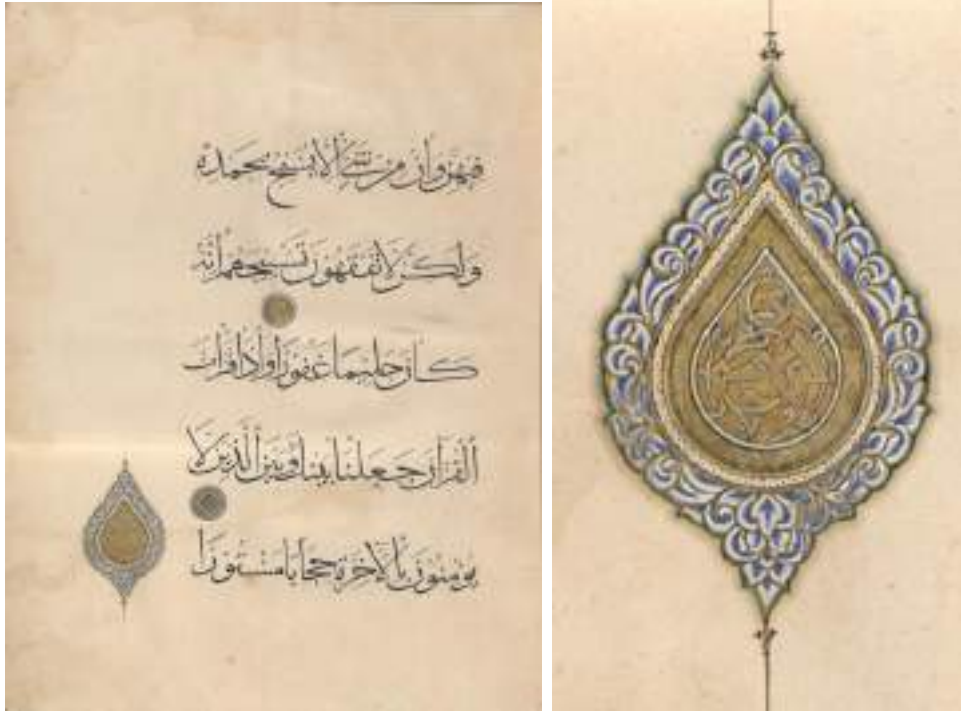 فيهن وان من شي الا يسبح بحمده
ولكن لا تفقهون تسبيحهم انه
كان حليما غفورا واذا قرات
القران جعلنا بينك وبين الذين لا
يومنون بالاخرة حجابا مستورا